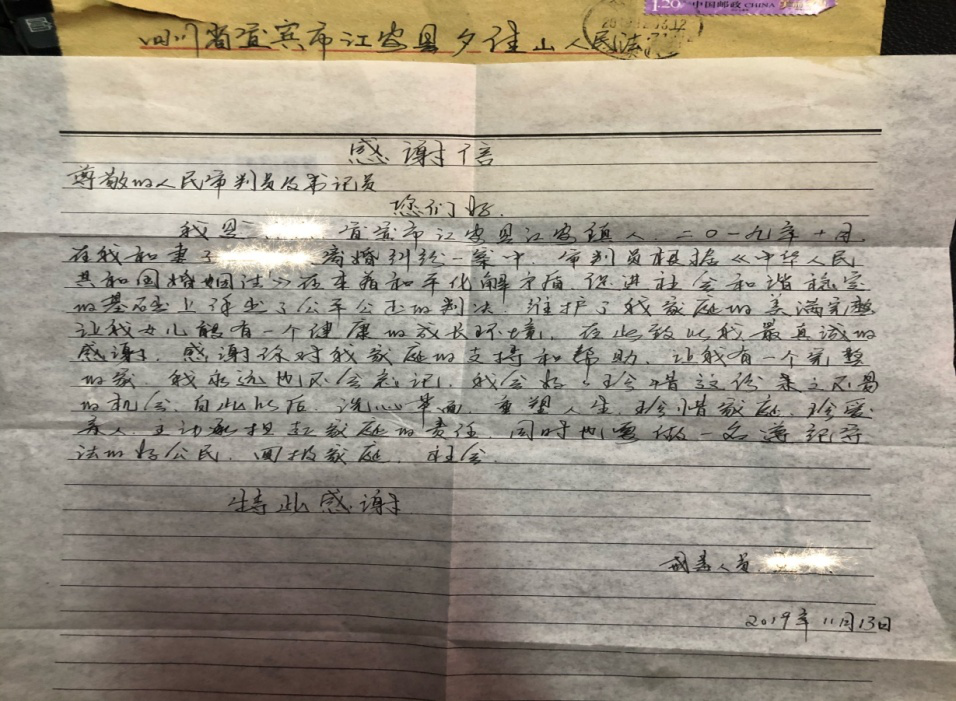 1.20 中国邮政 CHINA
四川省宜宾市江安县夕佳山人民法
感谢信
尊敬的人民审判员及书记员
您们好.
我是 宜宾市江安县江安镇人.二〇一九年十月.
在我和妻子 离婚纠纷一案中.审判员根据《中华人民
共和国婚姻法》在本着和平化解矛盾.促进社会和谐稳定
的基础上作出了公平公正的判决.维护了我家庭的美满完整
让我女儿能有一个健康的成长环境.在此致以我最真诚的
感谢.感谢你对我家庭的支持和帮助.让我有一个完整
的家.我永远也不会忘记.我会好珍惜这份来之不易
的机会.自此以后.洗心革面.重塑人生.珍惜家庭.珍爱
亲人.主动承担起家庭的责任.同时也要做一名遵纪守
法的好公民.回报家庭.社会.
特此感谢
人员
2019年11月13日